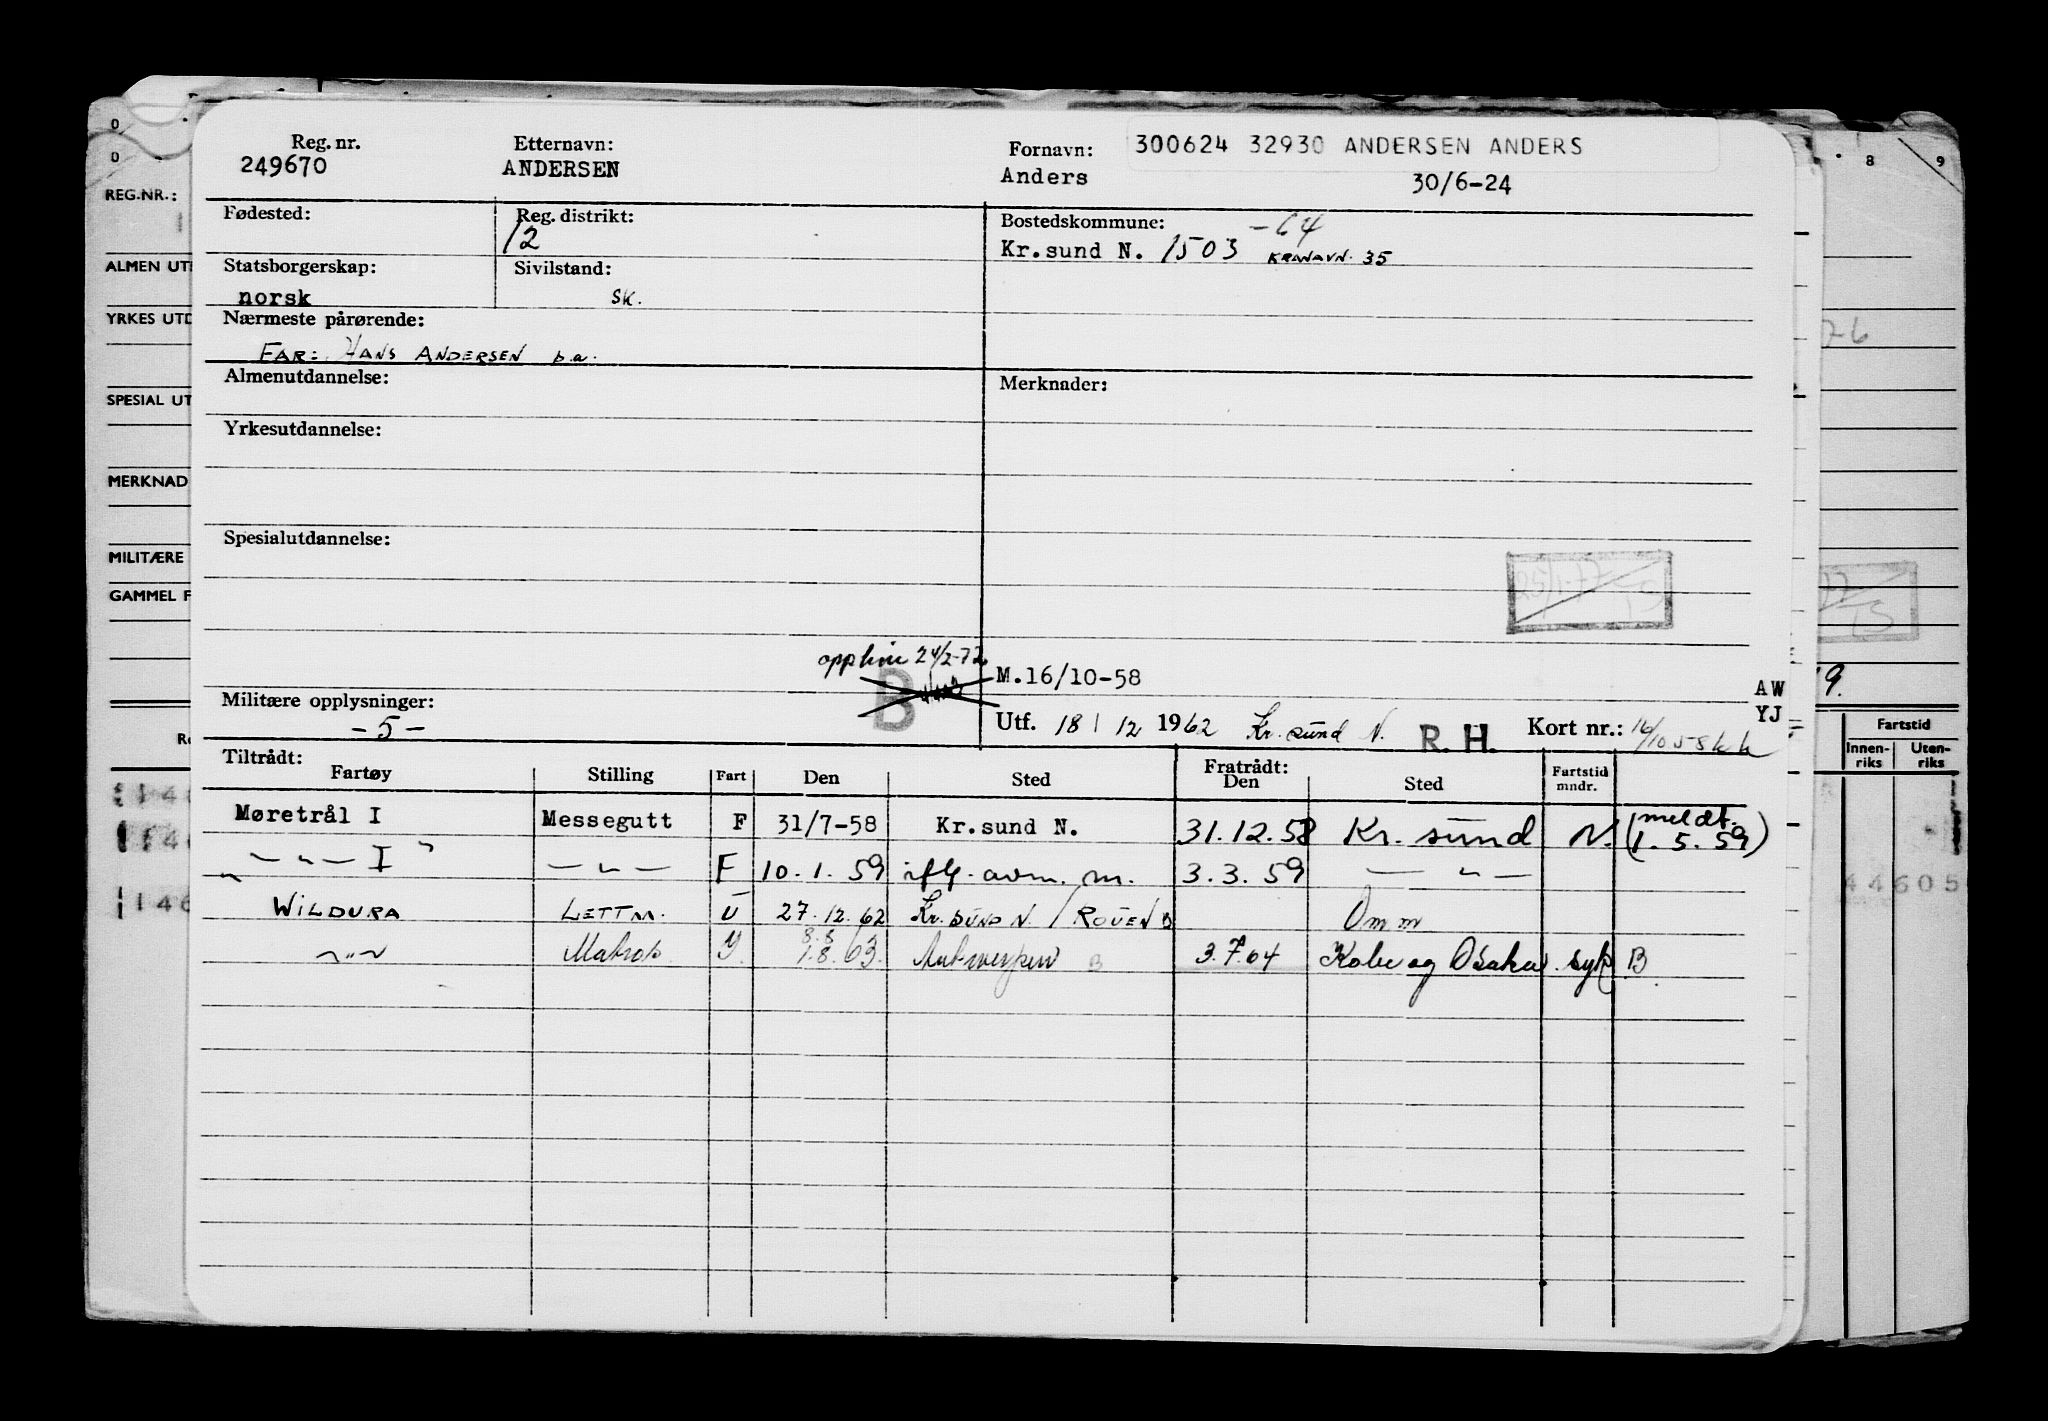 Reg. nr. Etternavn: Fornavn: 300624 32930 ANDERSEN ANDERS
249670 ANDERSEN Anders 30/6-24
Fødested: Reg. distrikt: Bostedskommune: -64
12 Kr.sund N. 1503 KRANAVN. 35
Statsborgerskap: Sivilstand:
norsk SK.
Nærmeste pårørende:
FAR: HANS ANDERSEN b.a.
Almenutdannelse: Merknader:
Yrkesutdannelse:
Spesialutdannelse:
25/1-77
TS
24/2-72
B M.16/10-58
Militære opplysninger:
-5- Utf. 18 / 12 1962 Kr. sund N. R. H. Kort nr.: 16/10 58
AW
YJ
Tiltrådt: Fratrådt:
Fartøy Stilling Fart Den Sted Den Sted Fartstid mndr.
Møretrål I Messegutt F 31/7-58 Kr.sund N. 31.12.58 Kr. sund N. (meldt. 1.5.59)
— " — I — " — F 10.1.59 iflg. avm. m. 3.3.59 — " —
WILDURA LETTM. U 27.12.62 Kr. SUND N. / ROUEN B Omm
— " — Matros 8.8 1.8.63. Antwerpen B 3.7.64 Kobe og Osaka syk B.
0
0
REG.NR.:
ALMEN UT
YRKES UTD
SPESIAL UT
MERKNAD
MILITÆRE
GAMMEL F
8 9
76
77
TS
19.
Fartstid
Innen-riks Uten-riks
146
146
146
44605